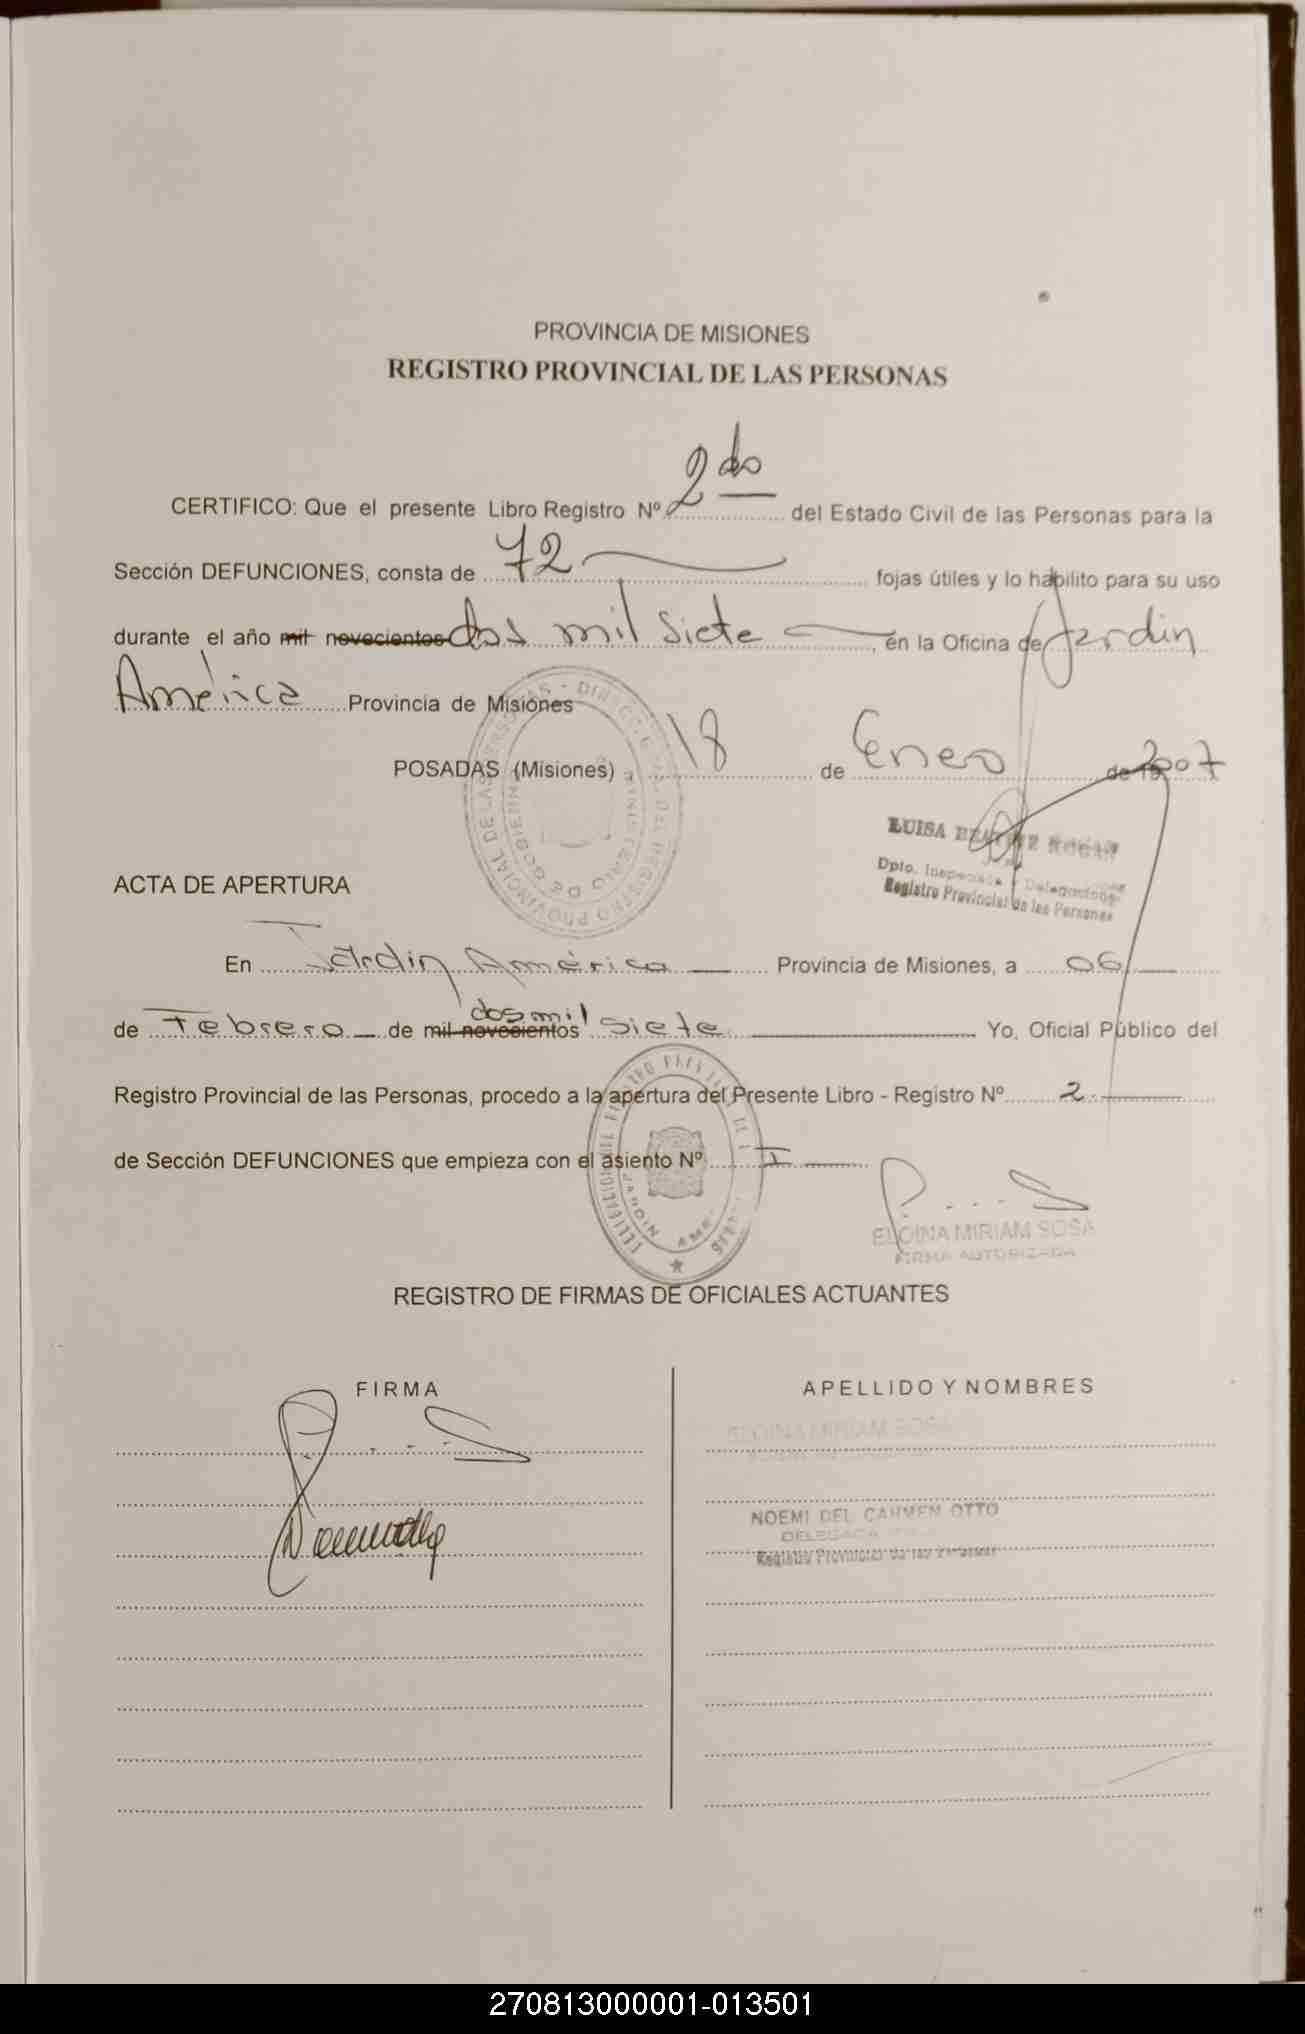 PROVINCIA DE MISIONES
REGISTRO PROVINCIAL DE LAS PERSONAS
CERTIFICO: Que el presente Libro Registro Nº 2do del Estado Civil de las Personas para la
Sección DEFUNCIONES, consta de 72 fojas útiles y lo habilito para su uso
durante el año mil novecientos dos mil siete en la Oficina de Jardin
América Provincia de Misiones
POSADAS (Misiones) 18 de Enero de 19 2007
LUISA BEATRIZ
Dpto. Inspección y Delegaciones
Registro Provincial de las Personas
ACTA DE APERTURA
En Jardin América Provincia de Misiones, a 06
de Febrero de mil novecientos dos mil siete Yo, Oficial Público del
Registro Provincial de las Personas, procedo a la apertura del Presente Libro - Registro Nº 2
de Sección DEFUNCIONES que empieza con el asiento Nº I
ELOINA MIRIAM SOSA
FIRMA AUTORIZADA
REGISTRO DE FIRMAS DE OFICIALES ACTUANTES
FIRMA APELLIDO Y NOMBRES
ELOINA MIRIAM SOSA
NOEMI DEL CARMEN OTTO
DELEGADA
Registro Provincial de las Personas
270813000001-013501